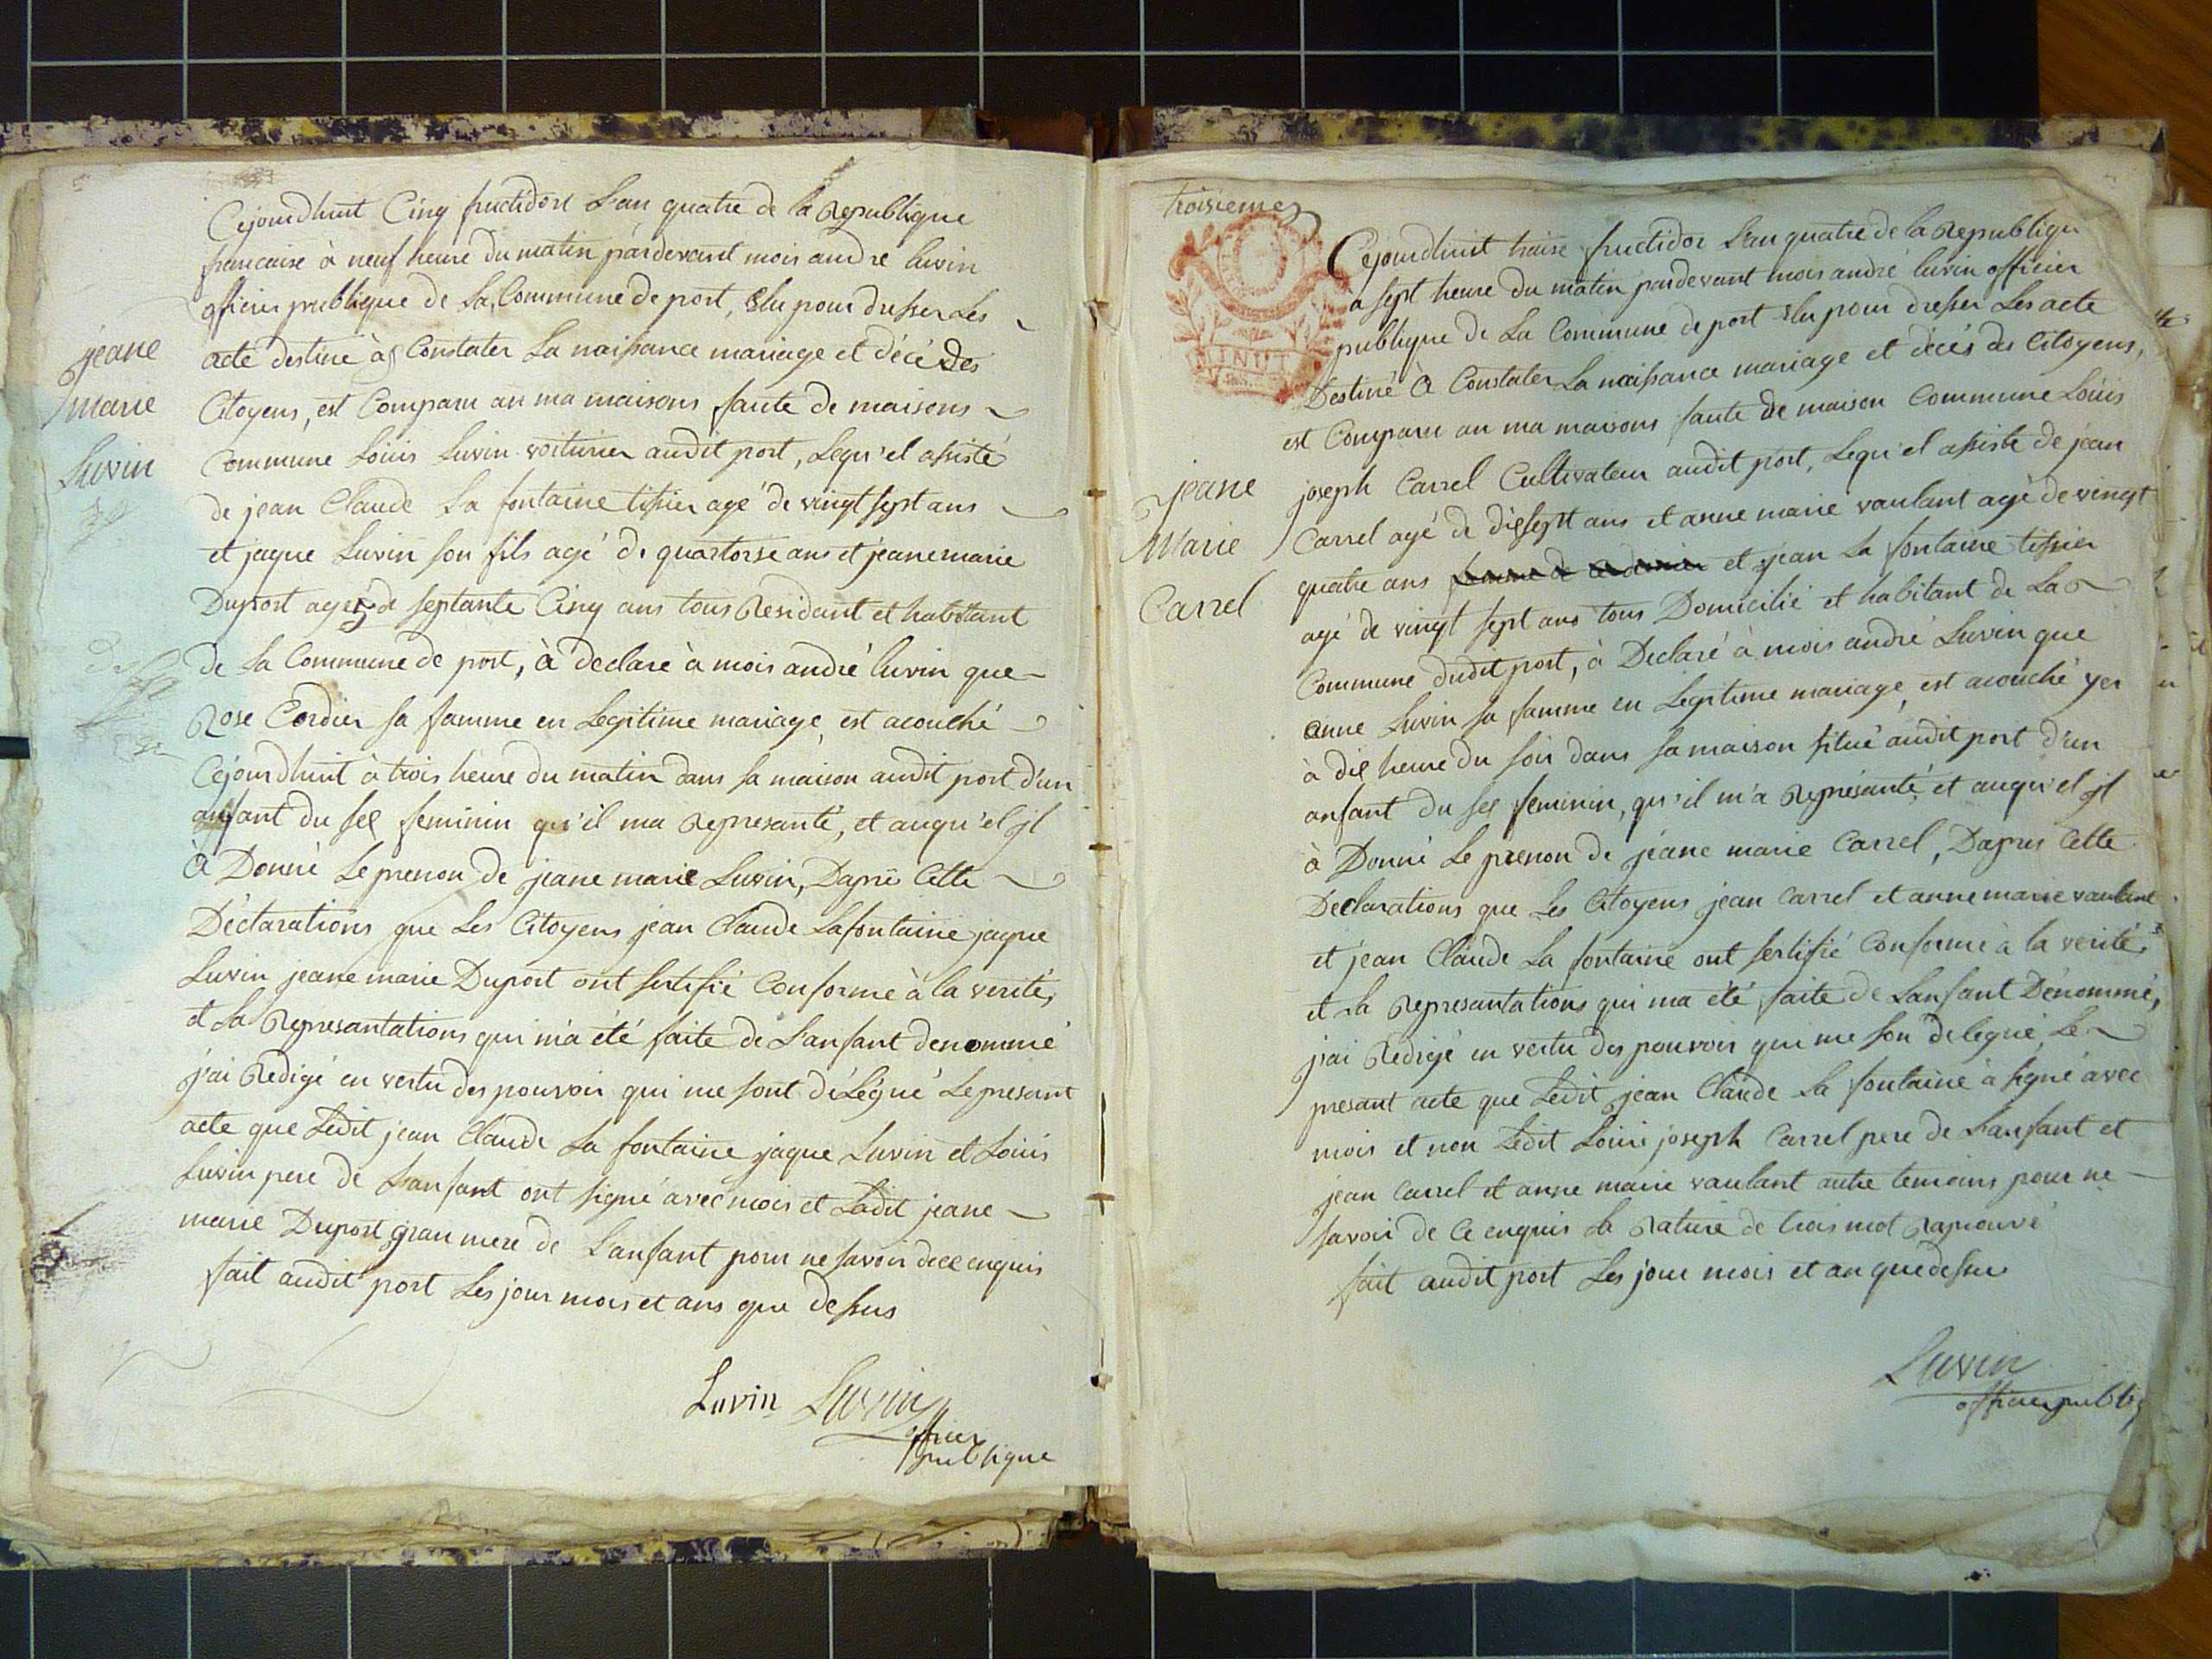 Cejourdhuit Cinq fructidort L'an quatre de la Republique
francaise à neuf heure du matin pardevant mois andre luvin
officier publique de La Commune de port, Elu pour dresser Les
acte destiné à Constater La naissance mariage et décé Des
Citoyens, est Comparu an ma maisons faute de maisons
Commune Loüis Luvin voiturier audit port, Lequ'el assisté
de jean Claude La fontaine tissier agé de vingt sept ans
et jaque Luvin son fils agé de quartorse ans et jeanemarie
Duport agez de septante Cinq ans tous Residant et habittant
de La Commune de port, à declaré à mois andré luvin que
Rose Cordier sa famme en Legitime mariage, est acouché
Cejourdhuit à trois heure du matin dans sa maison audit port d'un
anfant du sex feminin qu'il ma Represanté, et auqu'el jl
à Donné Le prenon de jeane marie Luvin, Daprè Cette
Déclarations que Les Citoyens jean Claude Lafontaine jaque
Luvin jeane marie Duport ont sertifié Conforme à la verité,
et La Represantations qui m'a été faite de L'anfant denommé
j'ai Redigé en vertu des pouvoir qui me sont délégué Le presant
acte que Ledit jean Claude La fontaine jaque Luvin et Loüis
Luvin pere de L'anfant ont signé avec mois et Ladit jeane
marie Duport gran mere de L'anfant pour ne savoir dece enquis
fait audit port Les jour mois et ans que dessus
jeane
marie
Luvin
Luvin Luvin
officier
publique
troisieme
Cejourdhuit traise fructidor L'an quatre de la Republiqu
à sept heure du matin pardevant mois andré luvin officier
publique de La Commune de port elu pour dresser Les acte
Destiné à Constater La naissance mariage et décés des Citoyens,
est Comparu an ma maisons faute de maison Commune Loüis
joseph Carrel Cultivateur audit port, Lequ'el assiste de jean
Carrel agé de dissept ans et anne marie vaulant agé de vingt
quatre ans et jean La fontaine tissier
agé de vingt sept ans tous Domicilié et habitant de La
Commune dudit port, à Declaré à mois andré Luvin que
anne Luvin sa famme en Legitime mariage, est acouché yer
à dix heure du soir dans sa maison situé audit port d'un
anfant du sex feminin, qu'il m'a Represanté et auqu'el jl
à Donné Le prenon de jeane marie Carrel, Dapres Cette
Declarations que Les Citoyens jean Carrel et anne marie vaulant
et jean Claude La fontaine ont sertifié Conforme à la verité,
et La Represantations qui ma été faite de Lanfant Dénommé,
j'ai Redigé en vertu des pouvoir qui me son delegué, Le
presant acte que Ledit jean Claude La fontaine à signé avec
mois et non Ledit Loüis joseph Carrel pere de L'anfant et
jean Carrel et anne marie vaulant autre temoins pour ne
savoir de Ce enquis La Rature de trois mot Raprouvé
fait audit port Les jour mois et an que dessu
jeane
Marie
Carrel
Luvin
officier publiq